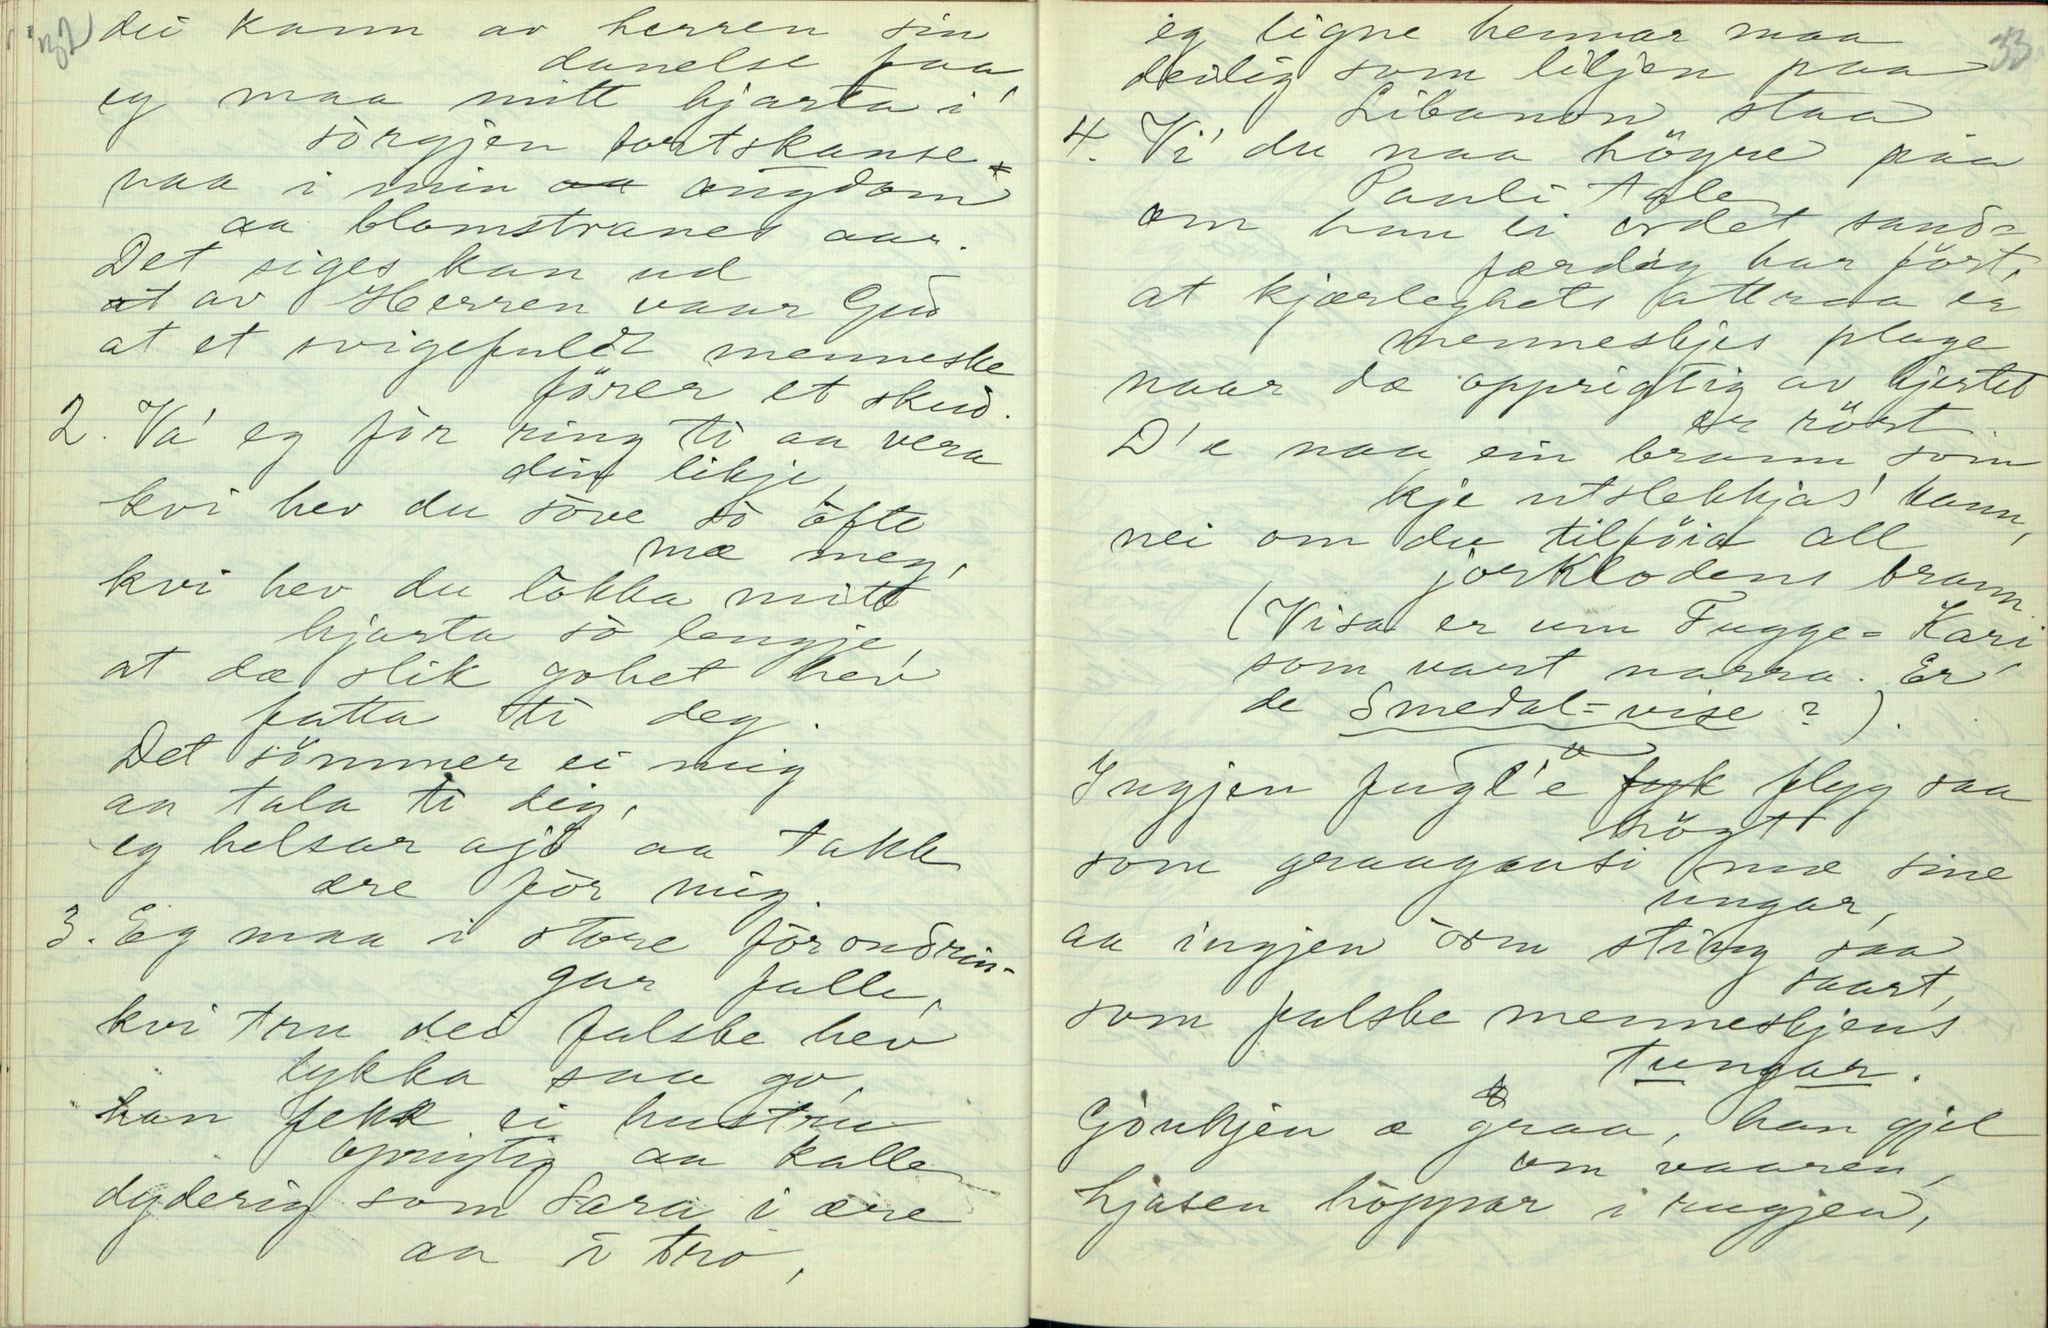 32
du kann av herren sin
danelse faa
eg maa mitt hjarta i
sòrgjen bortskanse
naa i min ongdom
aa blomstranes aar.
Det siges kan ud
at av Herren vaar Gud
at et svigefuldt menneske
förer et skud.
2. Va' eg för ring ti aa vera
din likje
kvi hev du söve sò òfte
mæ meg,
kvi hev du lòkka mitt
hjarta sò lengje
at dæ slik gohet hev
fatta ti deg.
Det sömmer ei mig
aa tala ti dig,
eg helsar ajö aa takk
ære før mig.
3. Eg maa i store förondrin-
gar falle,
kvi tru dei falske hev
lykka saa go,
han fekk ei hustru
oprigtig aa kalle
dyderig som Sara i ære
aa i tro,
33
eg ligne hennar maa
deilig som liljen paa
Libanon staa
4. Vi' du naa högre paa
Pauli tale
om han ti ordet sand-
færdig har fört,
at kjærleghets attraa er
menneskjes plage
naar dæ opprigtig av hjertet
er rört
D'æ naa ein brann som
kje utslekkjas' kann,
nei om du tilföia all
jorklodens brann.
(Visa er um Fugge-Kari
som vart narra. Er
de Smedal-vise?).
Ingjen fugl'e fyk flyg saa
högt
som graagaasi mæ sine
ungar,
aa ingjen orm sting saa
saart,
som falske menneskjens
tungar.
Gòukjen æ graa, han gjel
om vaaren,
hjasen hòppar i rugjen,